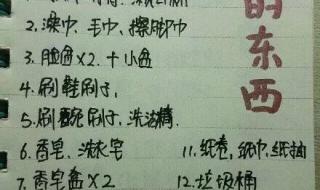 的东西
2. 澡巾、毛巾、擦脚巾
3. 脸盆×2. +小盆
4. 刷鞋刷子,
5. 刷碗刷子、洗洁精.
6. 香皂、洗衣皂
7. 香皂盒×2
11. 纸卷, 纸巾, 纸抽
12. 垃圾桶